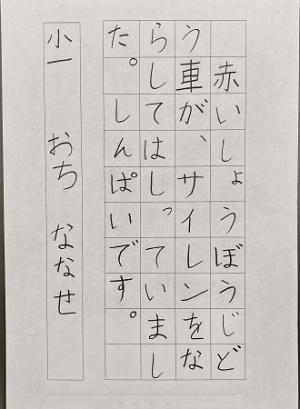 赤いしょうぼうじど
う車が、サイレンをな
らしてはしっていまし
た。しんぱいです。
小一 おち ななせ